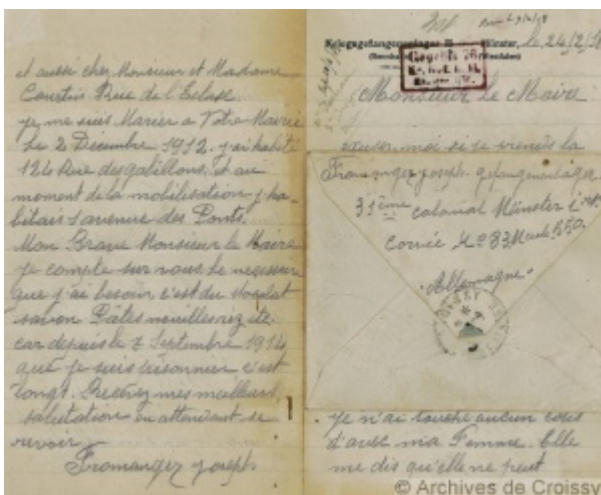 et aussi chez Monsieur et Madame
Courtin Rue de l'Ecluse
je me suis Marier a Votre Mairie
Le 2 Décembre 1912. j'ai habité
124 Rue des gabillons. et au
moment de la mobilisation j'ha-
bitais 1 avenue des Ponts.
Mon Brave Monsieur le Maire
je compte sur vous le
que j'ai besoin c'est du chocolat
savon Pâtes
car depuis le 7 Septembre 1914
que je suis prisonnier c'est
longs. Recevez mes meilleurs
salutation en attendant se
revoir
Fromanger Joseph
Kriegsgefangenenlager II Münster, le 24/2/
Geprüft
Monsieur Le Maire
excuser moi si je viens la
Fromanger Joseph. gefangenenlager
31ème colonial Münster
Corvée No 83
Allemagne
je n'ai touché aucun colis
d'avec ma Femme. Elle
me dis qu'elle ne peut
© Archives de Croissy